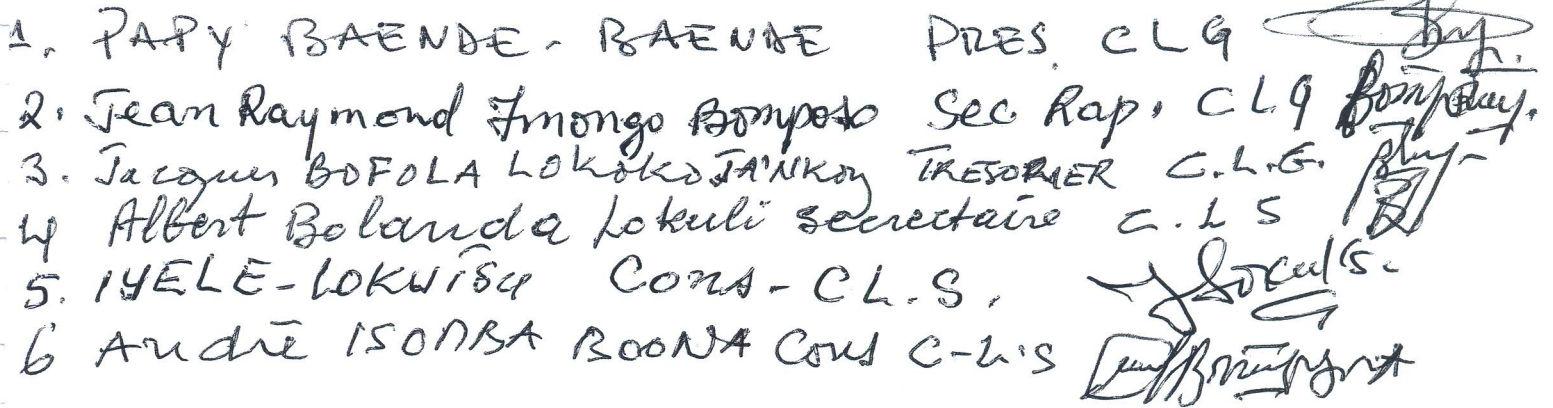 1. PAPY BAENDE - BAENDE PRES. CLG
2. Jean Raymond Imongo Bompoto Sec Rap. CLG
3. Jacques BOFOLA LOKOKO TRESORIER C.L.G.
4 Albert Bolanda Lokuli secrectaire C.L S
5. IYELE-LOKWISA Cons - CL.S.
6 André ISOMBA BOONA Cons C-L.S